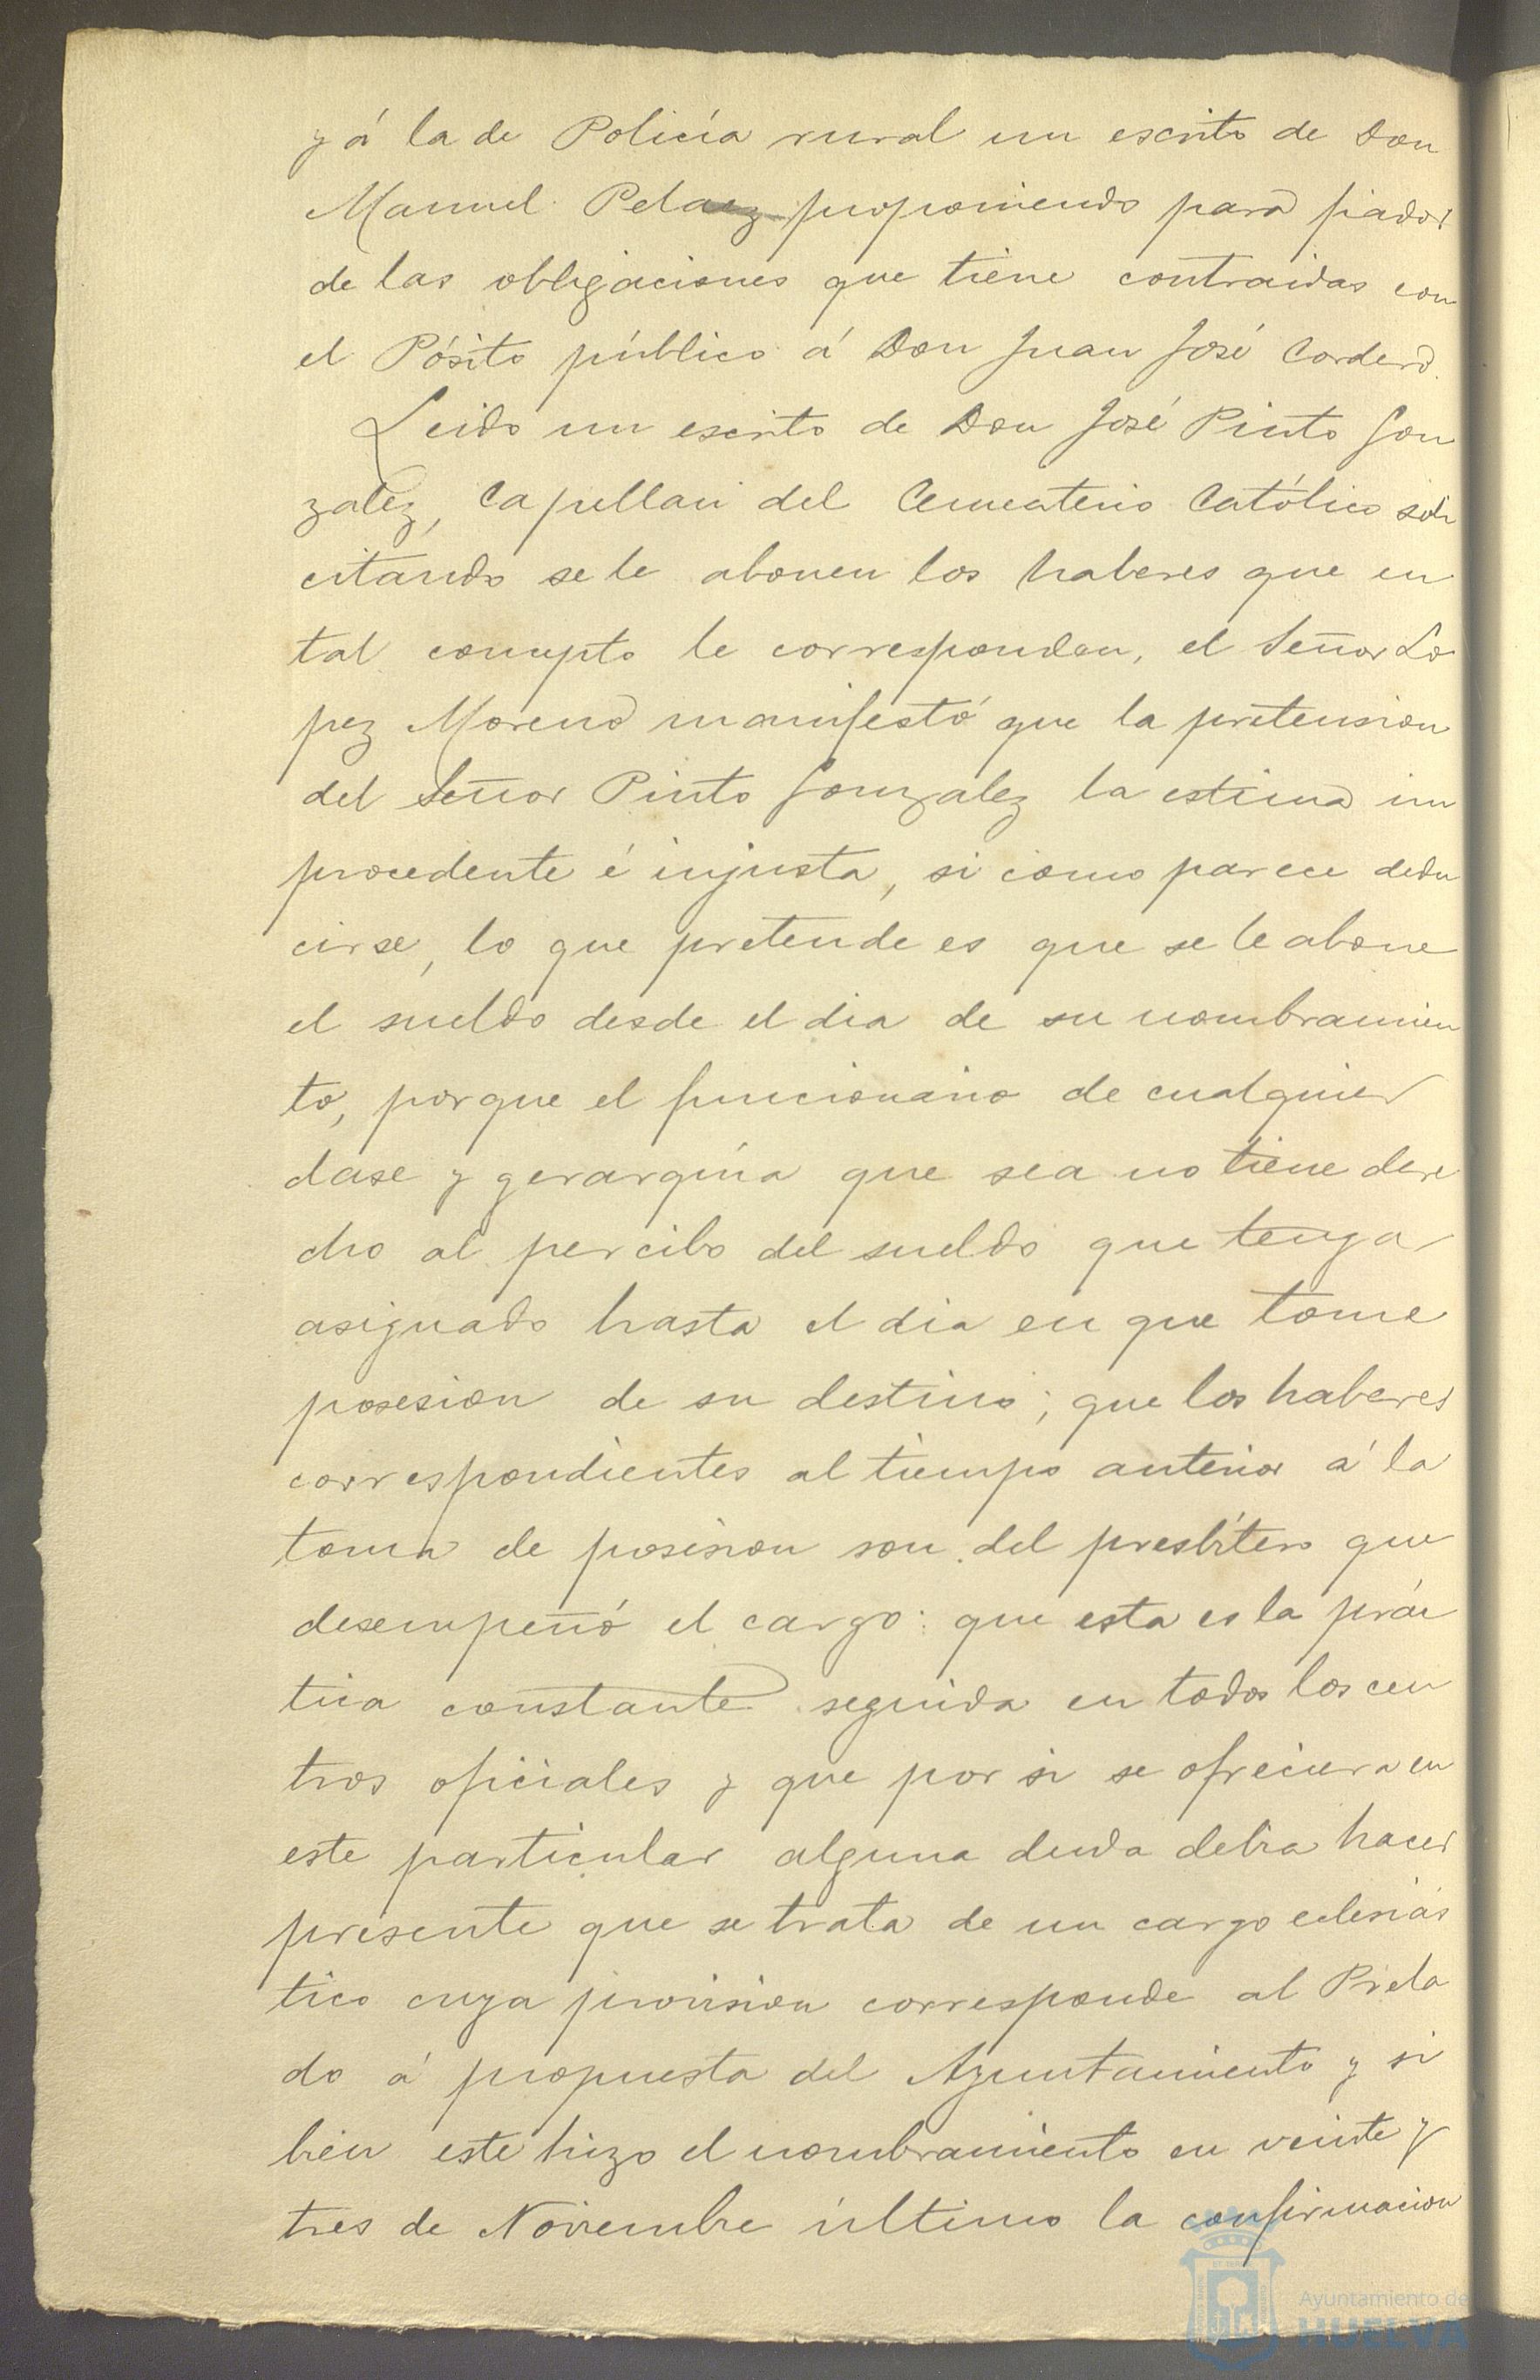 y á la de Policía rural un escrito de Don
Manuel Pelaez proponiendo para fiador
de las obligaciones que tiene contraidas con
el Pósito público á Don Juan José Cordero.
Leido un escrito de Don José Pinto Gon
zalez, Capellan del Cementerio Católico soli
citando se le abonen los haberes que en
tal concepto le correspondan, el Señor Lo
pez Moreno manifestó que la pretension
del Señor Pinto Gonzalez la estima im
procedente é injusta, si como parece dedu
cirse, lo que pretende es que se le abone
el sueldo desde el dia de su nombramien
to, porque el funcionario de cualquier
clase y gerarquía que sea no tiene dere
cho al percibo del sueldo que tenga
asignado hasta el dia en que tome
posesion de su destino; que los haberes
correspondientes al tiempo anterior á la
toma de posesion son del presbítero que
desempeñó el cargo: que esta es la prác
tica constante seguida en todos los cen
tros oficiales y que por si se ofreciera en
este particular alguna duda debia hacer
presente que se trata de un cargo eclesiás
tico cuya provision corresponde al Prela
do á propuesta del Ayuntamiento y si
bien este hizo el nombramiento en veinte y
tres de Noviembre último la confirmacion
Ayuntamiento de
HUELVA